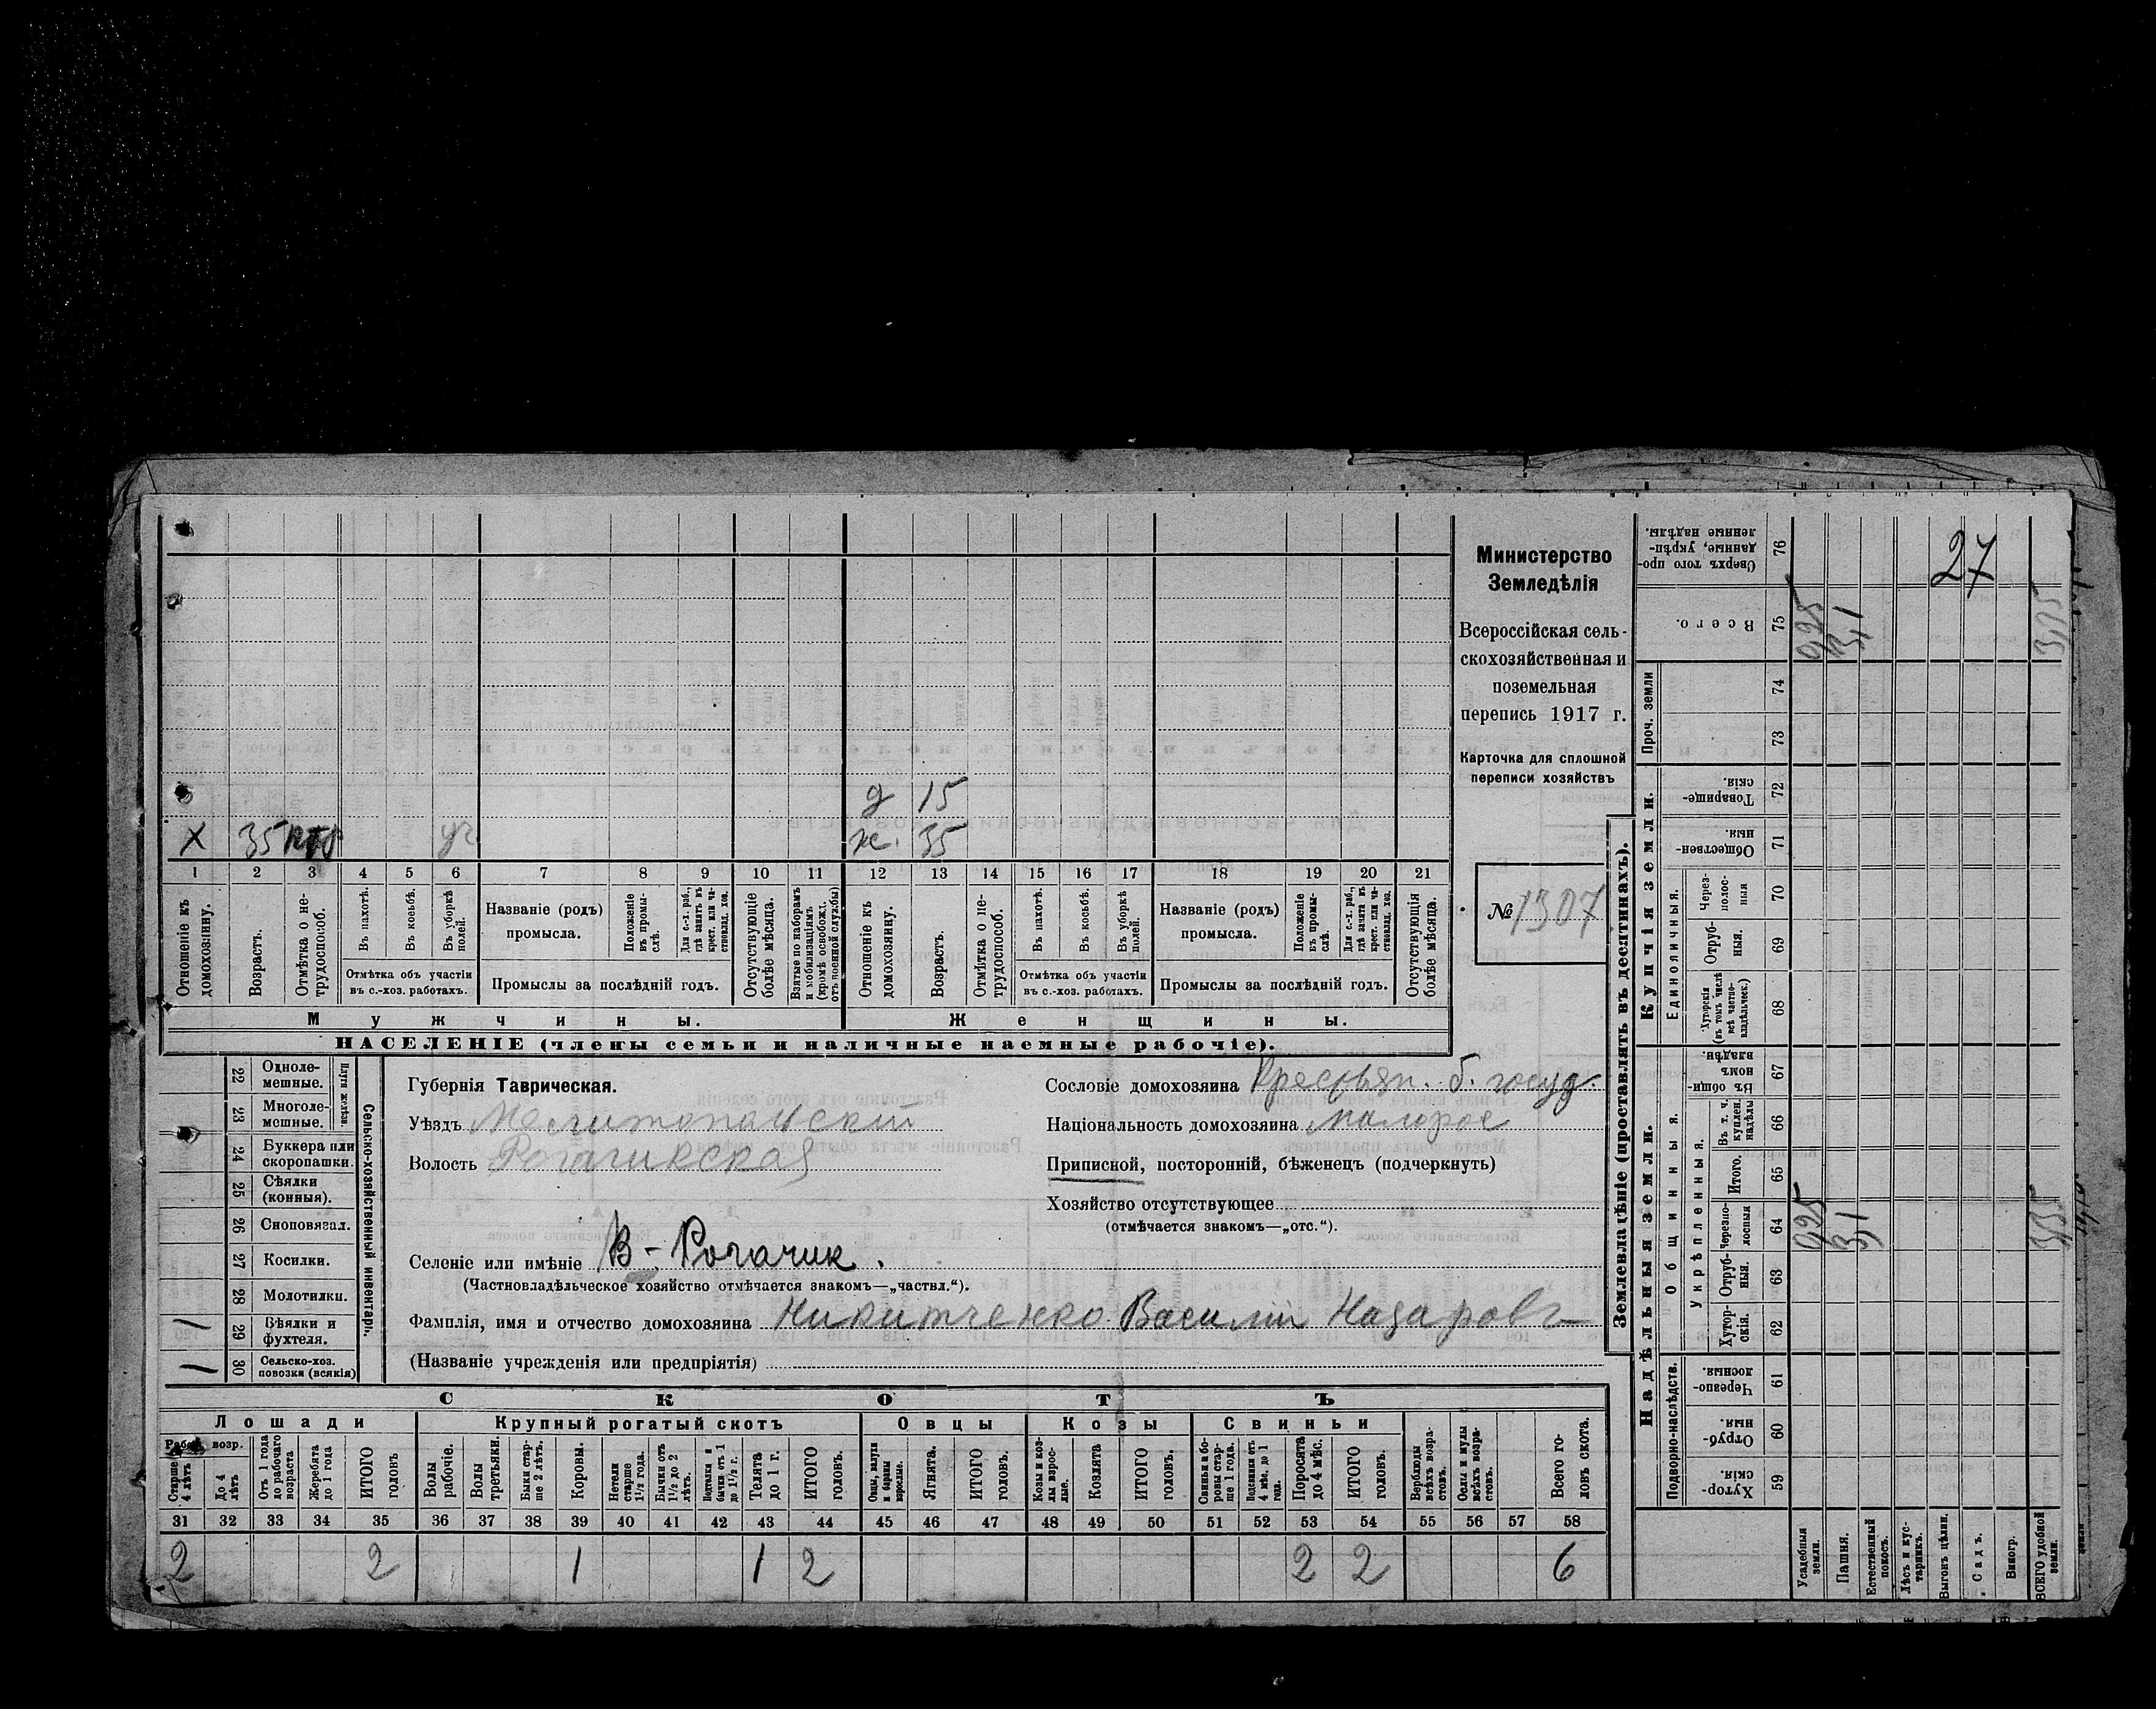 Министерство
Земледѣлія
Всероссійская сель-
скохозяйственная и
поземельная
перепись 1917 г.
Карточка для сплошной
переписи хозяйствъ
№ 1307
27
д 15
х 35 уч ж. 35
1 2 3 4 5 6 7 8 9 10 11 12 13 14 15 16 17 18 19 20 21
Отношеніе къ домохозяину.
Возрастъ.
Отмѣтка о не-трудоспособ.
Въ пахотѣ.
Въ косьбѣ.
Въ уборкѣ полей.
Отмѣтка объ участіи
въ с.-хоз. работахъ.
Названіе (родъ)
промысла.
Положеніе въ промы-слѣ.
Для с.-х. раб., гдѣ занятъ въ крест. или ча-ствовлад. хоз.
Промыслы за послѣдній годъ.
Отсутствующіе болѣе мѣсяца.
Взятые по наборамъ и мобилизаціямъ (кромѣ освобожд. отъ военной службы)
Отношеніе къ домохозяину.
Возрастъ.
Отмѣтка о не-трудоспособ.
Въ пахотѣ.
Въ косьбѣ.
Въ уборкѣ полей.
Отмѣтка объ участіи
въ с.-хоз. работахъ.
Названіе (родъ)
промысла.
Положеніе въ промы-слѣ.
Для с.-х. раб., гдѣ занята въ крест. или ча-ствовлад. хоз.
Промыслы за послѣдній годъ.
Отсутствующія болѣе мѣсяца.
Мужчины. Женщины.
НАСЕЛЕНІЕ (члены семьи и наличные наемные рабочіе).
22 Одноле-мешные.
23 Многоле-мешные.
Плуги желѣзн.
24 Буккера или скоропашки.
25 Сѣялки (конныя).
26 Сноповязал.
27 Косилки.
28 Молотилки.
1 29 Вѣялки и фухтеля.
1 30 Сельско-хоз. повозки (всякія)
Сельско-хозяйственный инвентарь.
Губернія Таврическая.
Уѣздъ Мелитопольскій
Волость Рогачикская
Сословіе домохозяина Крестьян. б. госуд.
Національность домохозяина малорос
Приписной, посторонній, бѣженецъ (подчеркнуть)
Хозяйство отсутствующее
(отмѣчается знакомъ—„отс.“).
Селеніе или имѣніе В-Рогачик.
(Частновладѣльческое хозяйство отмѣчается знакомъ—„частвл.“).
Фамилія, имя и отчество домохозяина Никитченко Василій Назаровъ
(Названіе учрежденія или предпріятія)
СКОТЪ
Лошади Крупный рогатый скотъ Овцы Козы Свиньи
Рабоч. возр.
Старше 4 лѣтъ
До 4 лѣтъ
Отъ 1 года до рабочаго возраста
Жеребята до 1 года
ИТОГО головъ
Волы рабочіе.
Волы третьяки.
Быки стар-ше 2 лѣтъ.
Коровы.
Нетели старше 1½ года.
Бычки отъ 1½ до 2 лѣтъ.
Подтелки и бычки отъ 1 до 1½ г.
Телята до 1 г.
ИТОГО головъ.
Овцы, валухи и бараны взрослые.
Ягнята.
ИТОГО головъ.
Козы и коз-лы взрос-лые.
Козлята
ИТОГО головъ.
Свиньи и бо-ровы стар-ше 1 года.
Подсвинки отъ 4 мѣс. до 1 года.
Поросята до 4 мѣс.
ИТОГО головъ.
Верблюды всѣхъ возра-стовъ.
Ослы и мулы всѣхъ возра-стовъ.
Всего го-ловъ скота.
31 32 33 34 35 36 37 38 39 40 41 42 43 44 45 46 47 48 49 50 51 52 53 54 55 56 57 58
2 2 1 1 2 2 2 6
Землевладѣніе (проставлять въ десятинахъ).
Надѣльныя земли. Купчія земли. Проч. земли
Подворно-наслѣдств. Общинныя. Укрѣпленныя. Единоличныя.
59 Хутор-скія.
60 Отруб-ныя.
61 Черезпо-лосныя.
62 Хутор-скія.
63 Отруб-ныя.
64 Черезпо-лосныя
65 Итого.
66 Въ т. ч. куплен. надѣлы
67 Въ общин-номъ владѣн.
68 Хуторскія (въ томъ числѣ всѣ частно-владѣльческ.)
69 Отруб-ныя.
70 Через-полос-ныя
71 Обществен-ныя.
72 Товарище-скія.
73
74
75 Всего.
76 Сверхъ того про-данные, укрѣп-ленные надѣлы.
Усадебныя земли. 0,25 0,25
Пашня. 3,1 3,1
Естественный покосъ.
Лѣсъ и кус-тарникъ.
Выгонъ цѣлин.
Садъ.
Виногр.
ВСЕГО удобной земли. 3,35